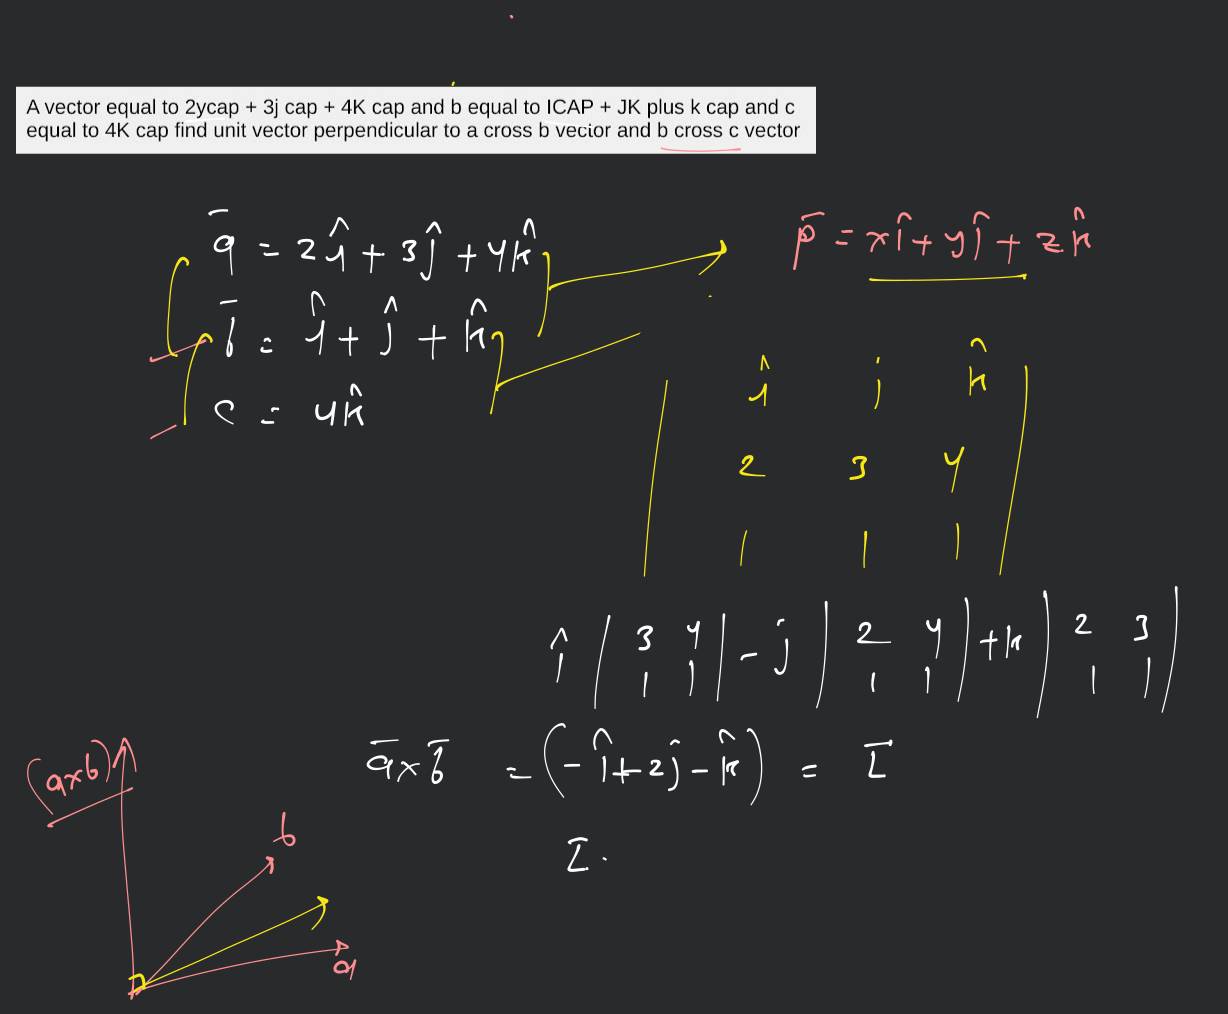 A vector equal to 2ycap + 3j cap + 4K cap and b equal to ICAP + JK plus k cap and c
equal to 4K cap find unit vector perpendicular to a cross b vector and b cross c vector
a̅ = 2î + 3ĵ + 4k̂
p̅ = xî + yĵ + zk̂
b̅ = î + ĵ + k̂
c = 4k̂
î j k̂
2 3 4
1 1 1
î | 3 4 | - j | 2 4 | + k | 2 3 |
1 1 1 1 1 1
a̅ × b̅ = (-î + 2ĵ - k̂) =
(a×b)
b
a